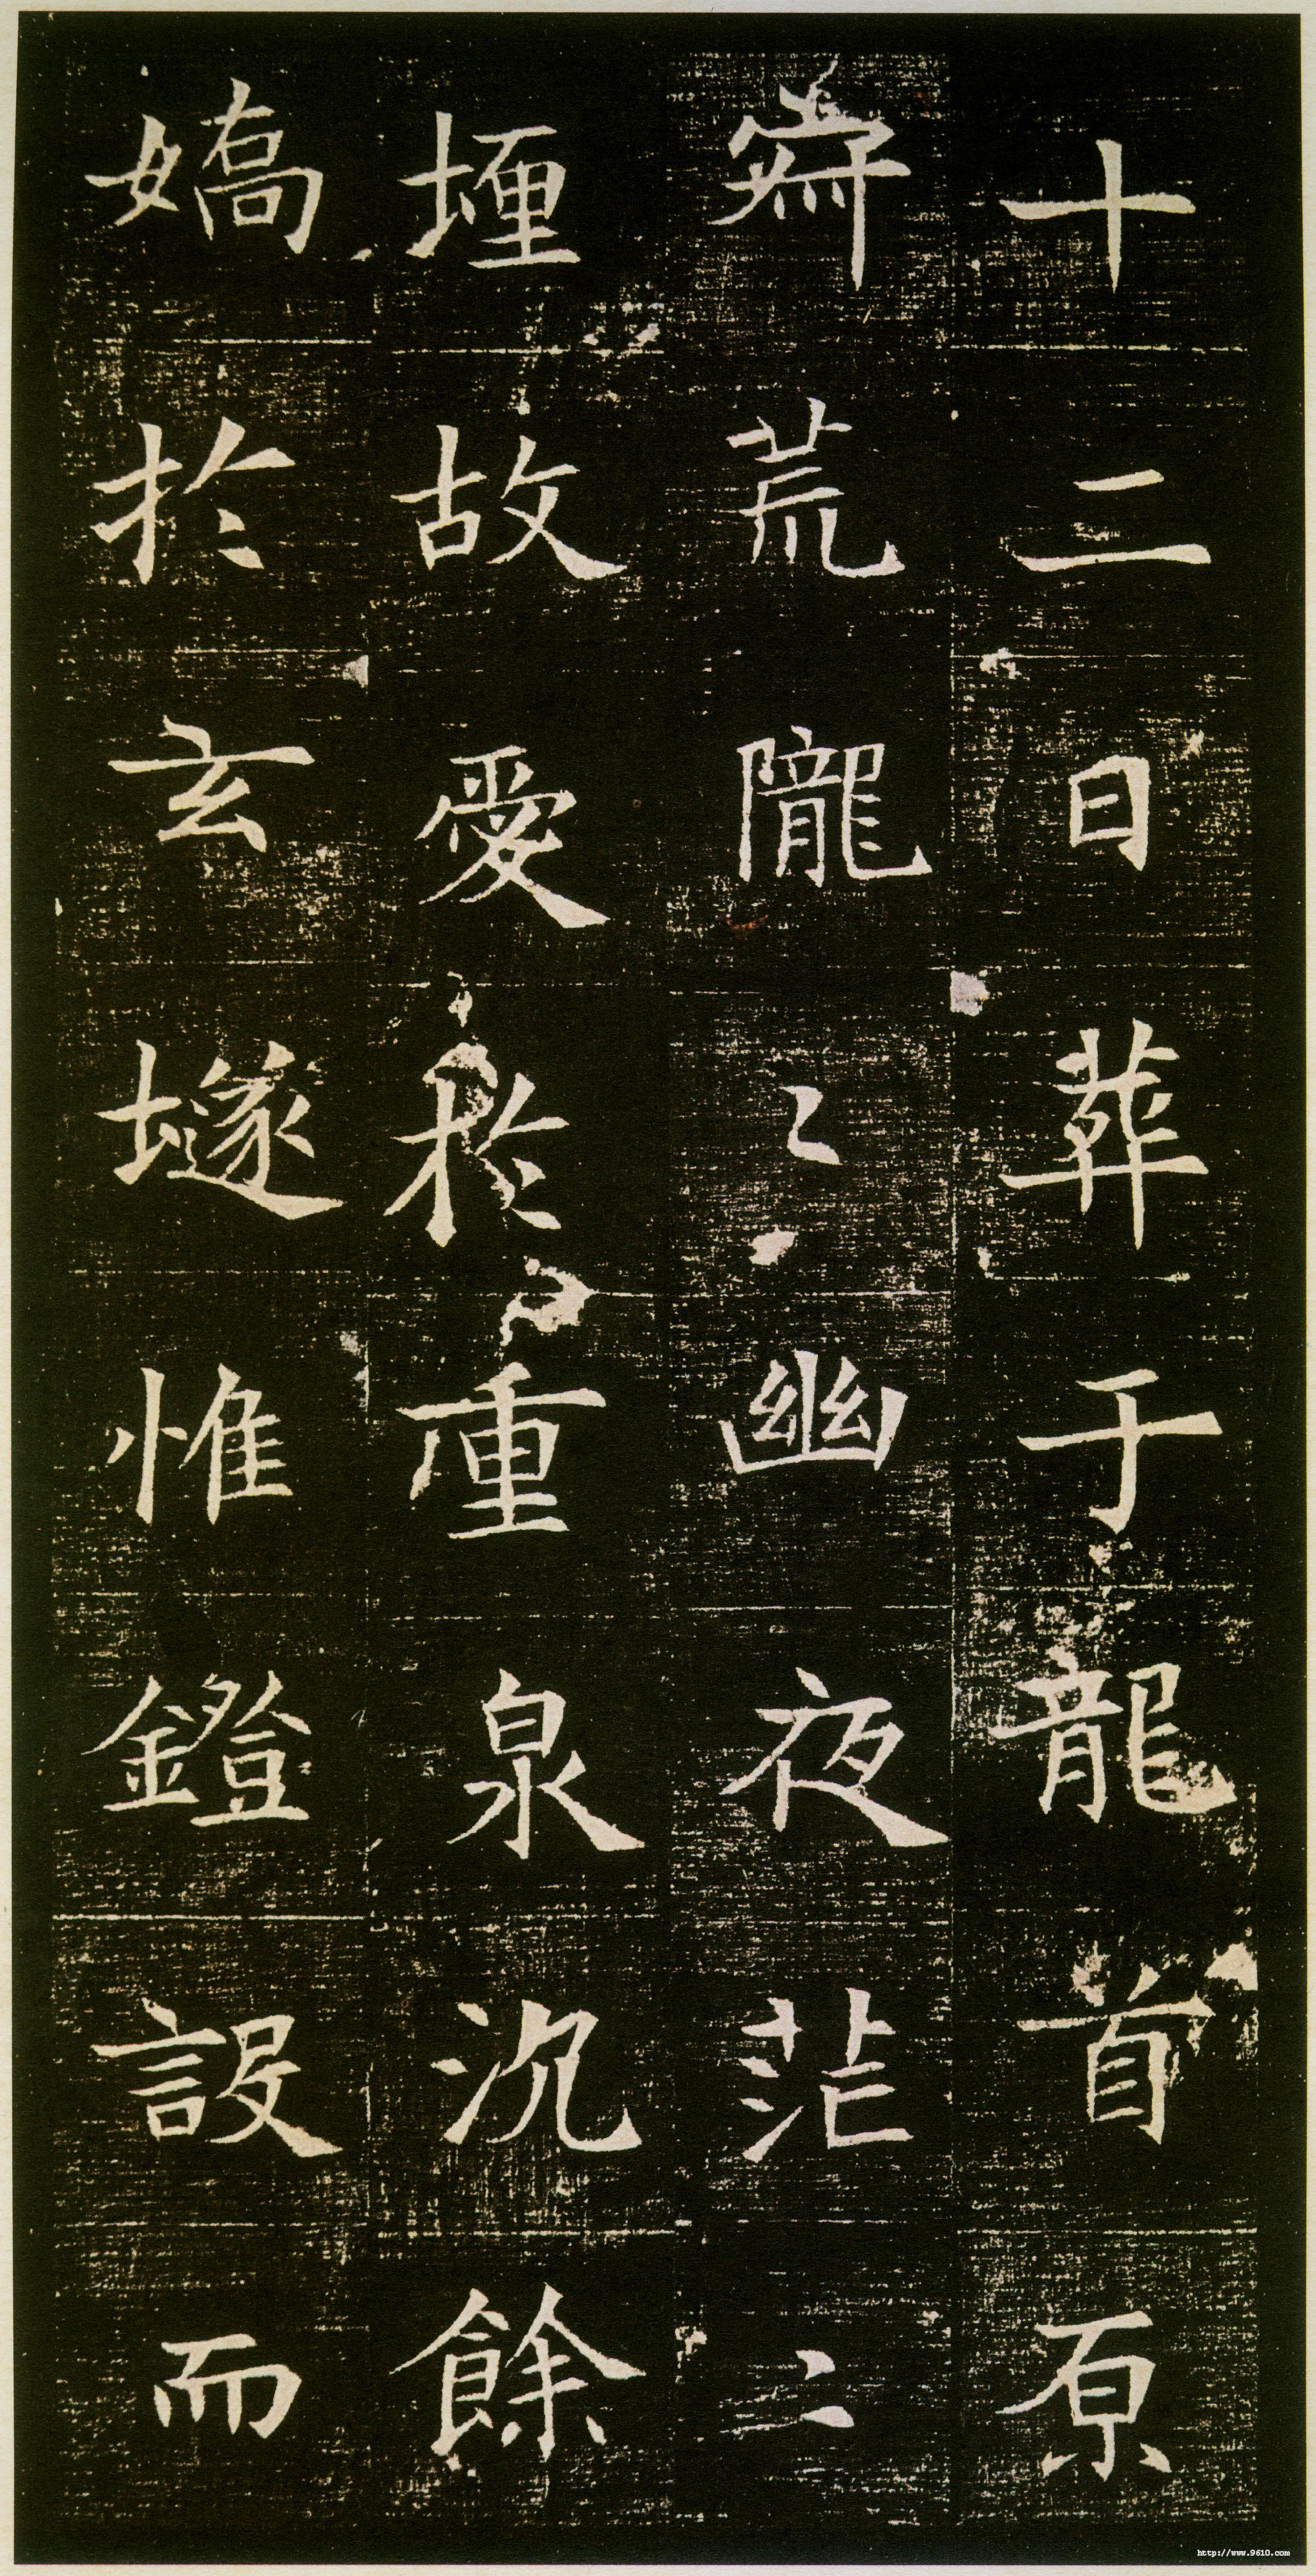 十二日葬于龍首原
寂荒隴〻幽夜茫〻
堙故愛於重泉沉餘
嬌於玄𡑞惟鐙設而
http://www.9610.com